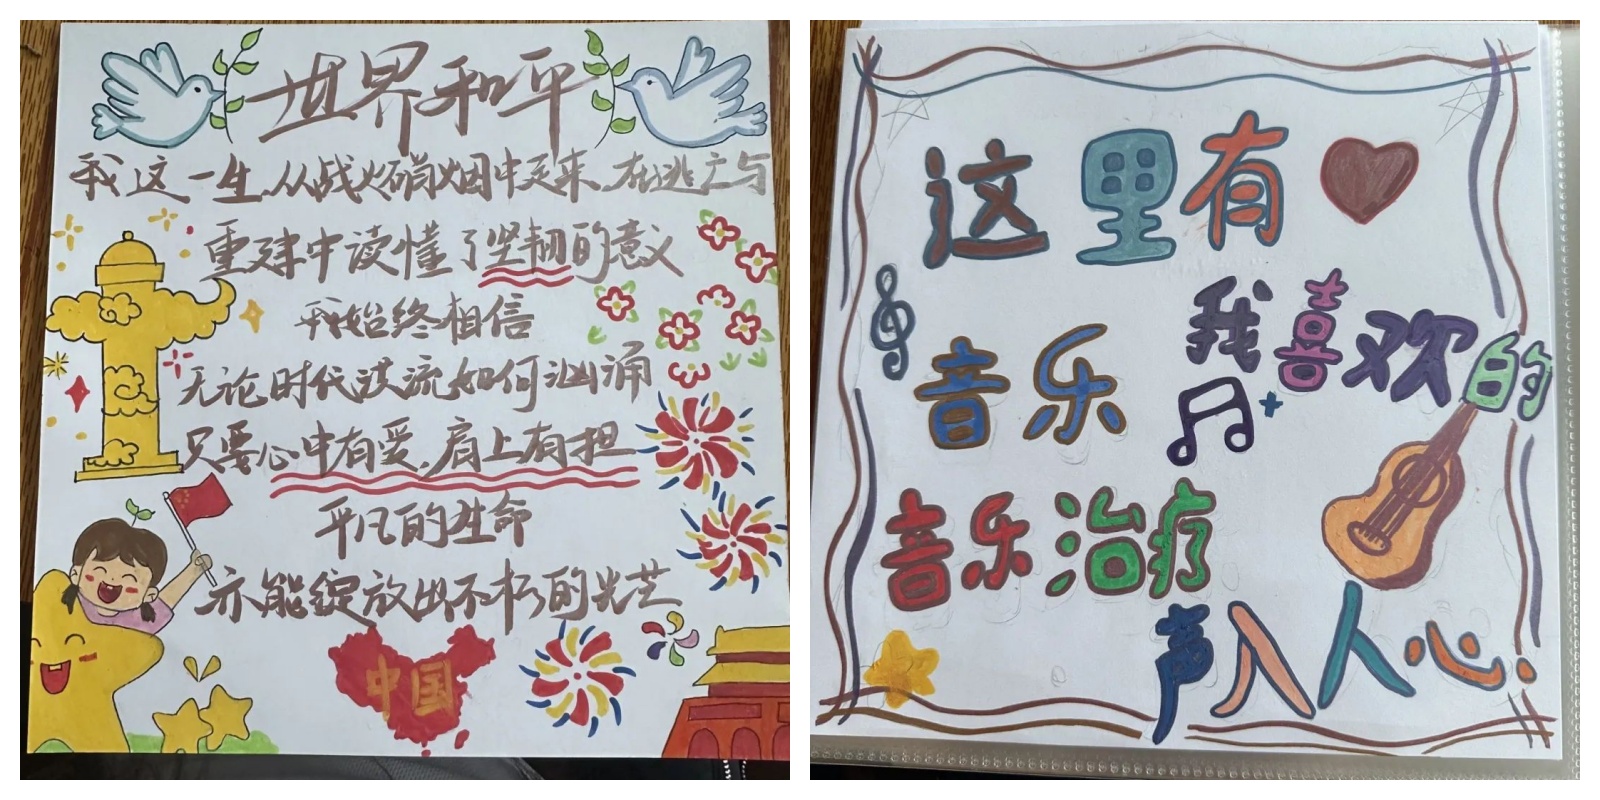 世界和平
我这一生,从战火硝烟中走来,在逃亡与
重建中读懂了坚韧的意义
我始终相信
无论时代洪流如何汹涌
只要心中有爱,肩上有担
平凡的生命
亦能绽放出不朽的光芒
中国
这里有
我喜欢的
音乐
音乐治疗
声入人心